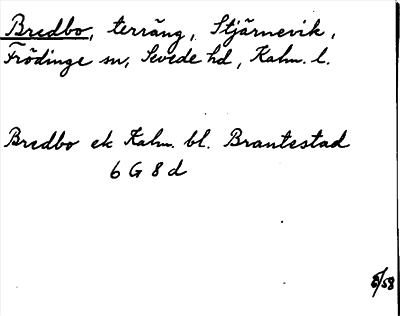 Bredbo, terräng, Stjärnevik,
Frödinge sn, Sevede hd, Kalm. l.
Bredbo ek Kalm. bl. Brantestad
6 G 8 d
6/58